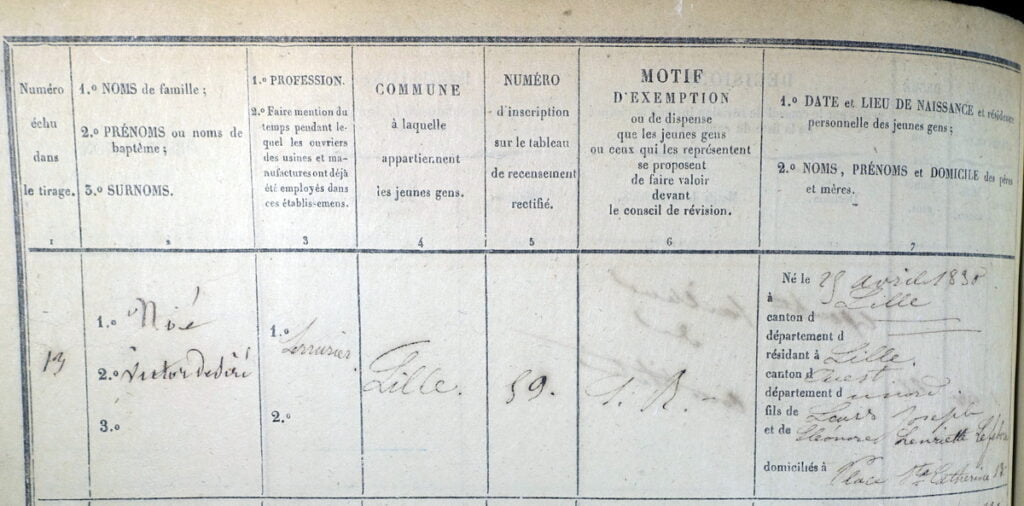 Numéro
échu
dans
le tirage.
1
1.º NOMS de famille ;
2.º PRÉNOMS ou noms de
baptême ;
3.º SURNOMS.
2
1.º PROFESSION.
2.º Faire mention du
temps pendant le-
quel les ouvriers
des usines et ma-
nufactures ont déjà
été employés dans
ces établis-emens.
3
COMMUNE
à laquelle
appartiennent
les jeunes gens.
4
NUMÉRO
d'inscription
sur le tableau
de recensement
rectifié.
5
MOTIF
D'EXEMPTION
ou de dispense
que les jeunes gens
ou ceux qui les représentent
se proposent
de faire valoir
devant
le conseil de révision.
6
1.º DATE et LIEU DE NAISSANCE et résidence
personnelle des jeunes gens ;
2.º NOMS, PRÉNOMS et DOMICILE des pères
et mères.
7
13
1.º Noé
2.º Victor désiré
3.º
1.º
Serrurier
2.º
Lille.
59.
Né le 25 avril 1830
à Lille
canton d
département d
résidant à Lille.
canton d ouest
département d u nord
fils de Louis Joseph
et de Eléonore Henriette Lefebvre
domiciliés à Place Ste Catherine